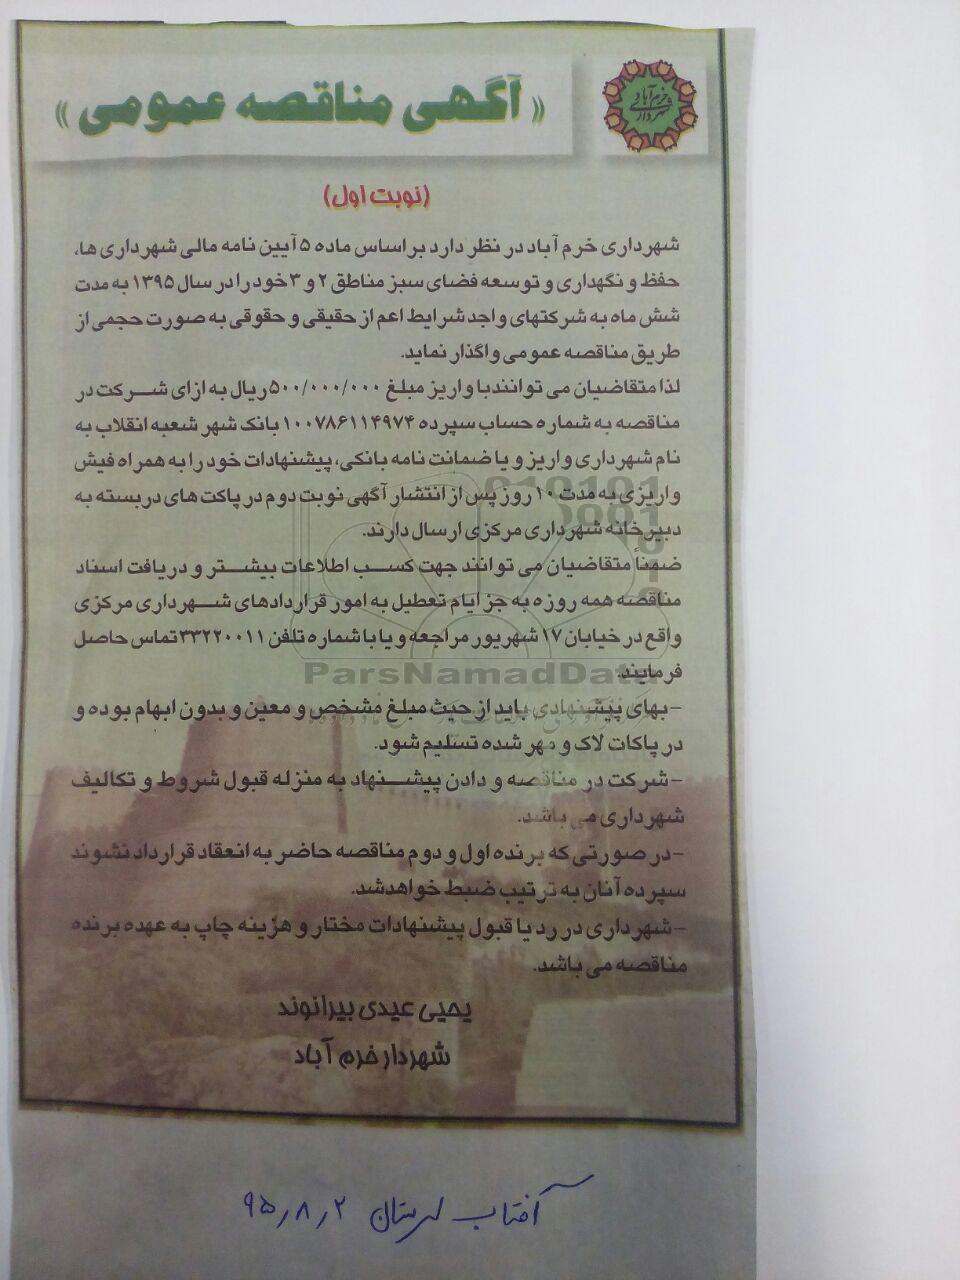 « آگهی مناقصه عمومی »
شهرداری خرم آباد
(نوبت اول)
شهرداری خرم آباد در نظر دارد براساس ماده ۵ آیین نامه مالی شهرداری ها،
حفظ و نگهداری و توسعه فضای سبز مناطق ۲ و ۳ خود را در سال ۱۳۹۵ به مدت
شش ماه به شرکتهای واجد شرایط اعم از حقیقی و حقوقی به صورت حجمی از
طریق مناقصه عمومی واگذار نماید.
لذا متقاضیان می توانند با واریز مبلغ ۵۰۰/۰۰۰/۰۰۰ ریال به ازای شرکت در
مناقصه به شماره حساب سپرده ۱۰۰۷۸۶۱۱۴۹۷۴ بانک شهر شعبه انقلاب به
نام شهرداری واریز و یا ضمانت نامه بانکی، پیشنهادات خود را به همراه فیش
واریزی به مدت ۱۰ روز پس از انتشار آگهی نوبت دوم در پاکت های دربسته به
دبیرخانه شهرداری مرکزی ارسال دارند.
ضمناً متقاضیان می توانند جهت کسب اطلاعات بیشتر و دریافت اسناد
مناقصه همه روزه به جز ایام تعطیل به امور قراردادهای شهرداری مرکزی
واقع در خیابان ۱۷ شهریور مراجعه و یا با شماره تلفن ۳۳۲۲۰۰۱۱ تماس حاصل
فرمایند.
ParsNamadData
-بهای پیشنهادی باید از حیث مبلغ مشخص و معین و بدون ابهام بوده و
در پاکات لاک و مهر شده تسلیم شود.
-شرکت در مناقصه و دادن پیشنهاد به منزله قبول شروط و تکالیف
شهرداری می باشد.
-در صورتی که برنده اول و دوم مناقصه حاضر به انعقاد قرارداد نشوند
سپرده آنان به ترتیب ضبط خواهد شد.
-شهرداری در رد یا قبول پیشنهادات مختار و هزینه چاپ به عهده برنده
مناقصه می باشد.
یحیی عیدی بیرانوند
شهردار خرم آباد
آفتاب لرستان ۹۵٫۸٫۲